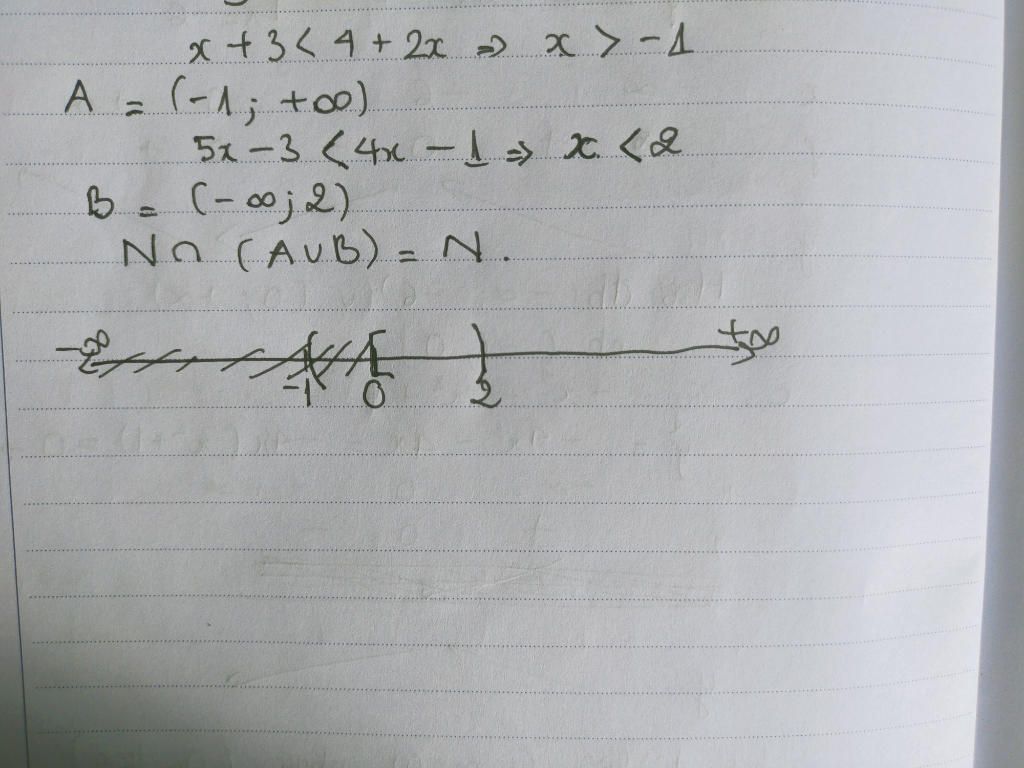 x + 3 < 4 + 2x ⇒ x > -1
A = (-1; +∞)
5x - 3 < 4x - 1 ⇒ x < 2
B = (-∞; 2)
N ∩ (A ∪ B) = N.
-∞ +∞
-1 0 2